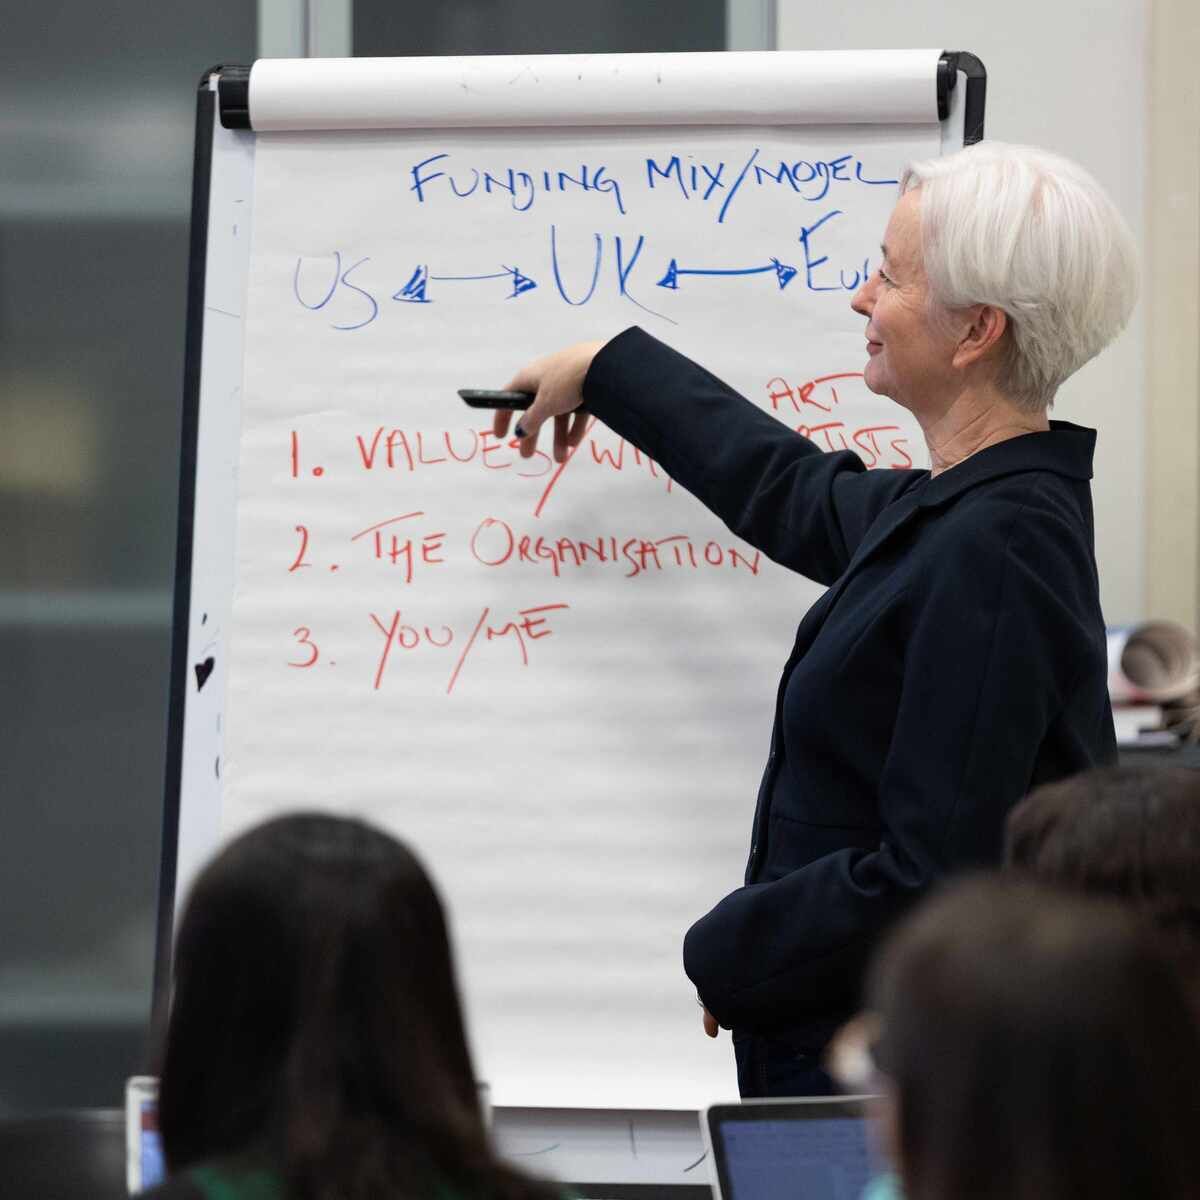 FUNDING MIX/MODEL
US UK
ART
1. VALUES
2. THE ORGANISATION
3. YOU/ME